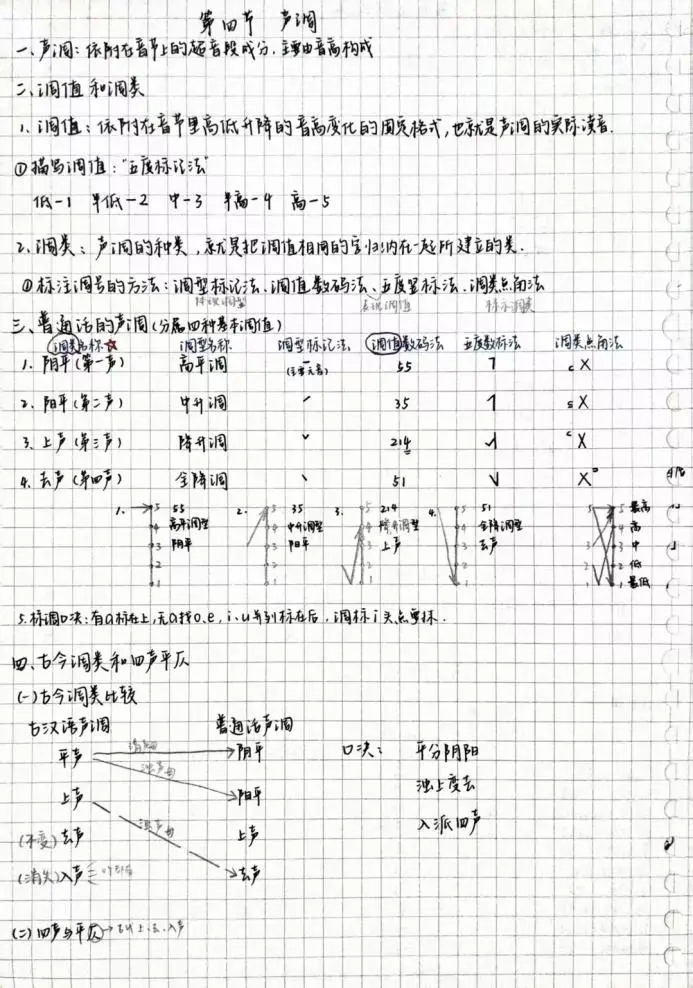 第四节 声调
一、声调：依附在音节上的超音段成分，主要由音高构成
二、调值和调类
1、调值：依附在音节里高低升降的音高变化的固定格式，也就是声调的实际读音.
①描写调值："五度标记法"
低-1 半低-2 中-3 半高-4 高-5
2、调类：声调的种类，就是把调值相同的字归纳在一起所建立的类.
①标注调号的方法：调型标记法、调值数码法、五度竖标法、调类点角法
表现调值
三、普通话的声调（分属四种基本调值）
调类名称☆ 调型名称 调型标记法 调值数码法 五度数标法 调类点角法
1、阴平（第一声） 高平调 ˉ (主要元音) 55 ˥ c X
2、阳平（第二声） 中升调 ˊ 35 s X
3、上声（第三声） 降升调 ˇ 214 c X
4、去声（第四声） 全降调 ˋ 51 X
1. 5 4 3 2 1 55 高平调型 阴平
2. 5 4 3 2 1 35 中升调型 阳平
3. 5 4 3 2 1 214 降升调型 上声
4. 5 4 3 2 1 51 全降调型 去声
5 3 2 1 5 最高 4 高 3 中 2 低 1 最低
5.标调口决：有a标在上，无a找o、e，i、u并列标在后，调标i头点要抹.
四、古今调类和四声平仄
(一)古今调类比较
古汉语声调 普通话声调
平声 阴平 口决： 平分阴阳
浊声母
阳平 浊上变去
上声
入派四声
浊声母
(不变)去声 上声
(消失)入声 去声
(二)四声与平仄→古代上、去、入声